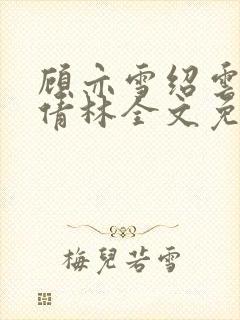 顾亦雪绍雲
倩林全文免
梅兒若雪